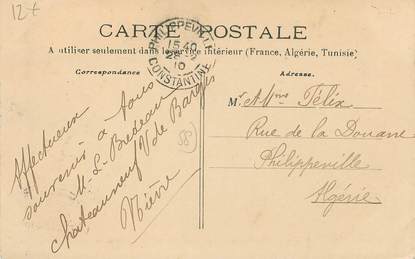 12+
CARTE POSTALE
A utiliser seulement dans le service intérieur (France, Algérie, Tunisie)
PHILIPPEVILLE
15 40
10
CONSTANTINE
Correspondance
Adresse.
Affectueux
souvenir à tous
M. L. Bredeau
Chateauneuf V de Bargis
Nièvre
58
Mr & Mme Félix
Rue de la Douane
Philippeville
Algérie